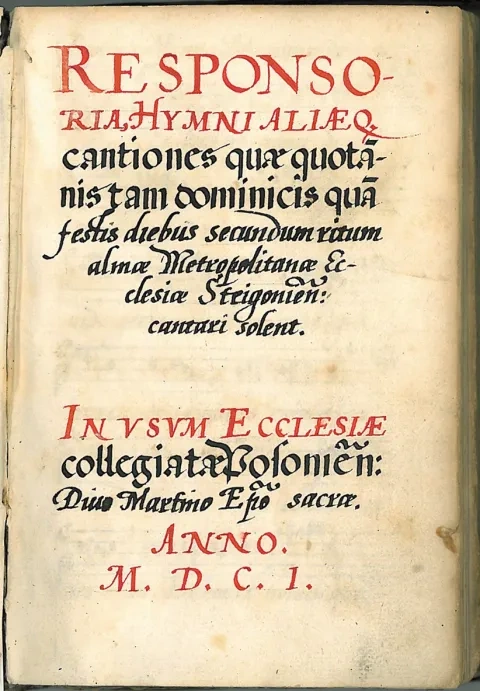 RESPONSO-
RIA, HYMNI ALIÆQ.
cantiones quæ quotā-
nis tam dominicis quā
festis diebus secundum ritum
almæ Metropolitanæ Ec-
clesiæ Strigonień:
cantari solent.
IN VSVM ECCLESIÆ
collegiatæ Posonień:
Diuo Martino Epō sacræ.
ANNO.
M. D. C. I.